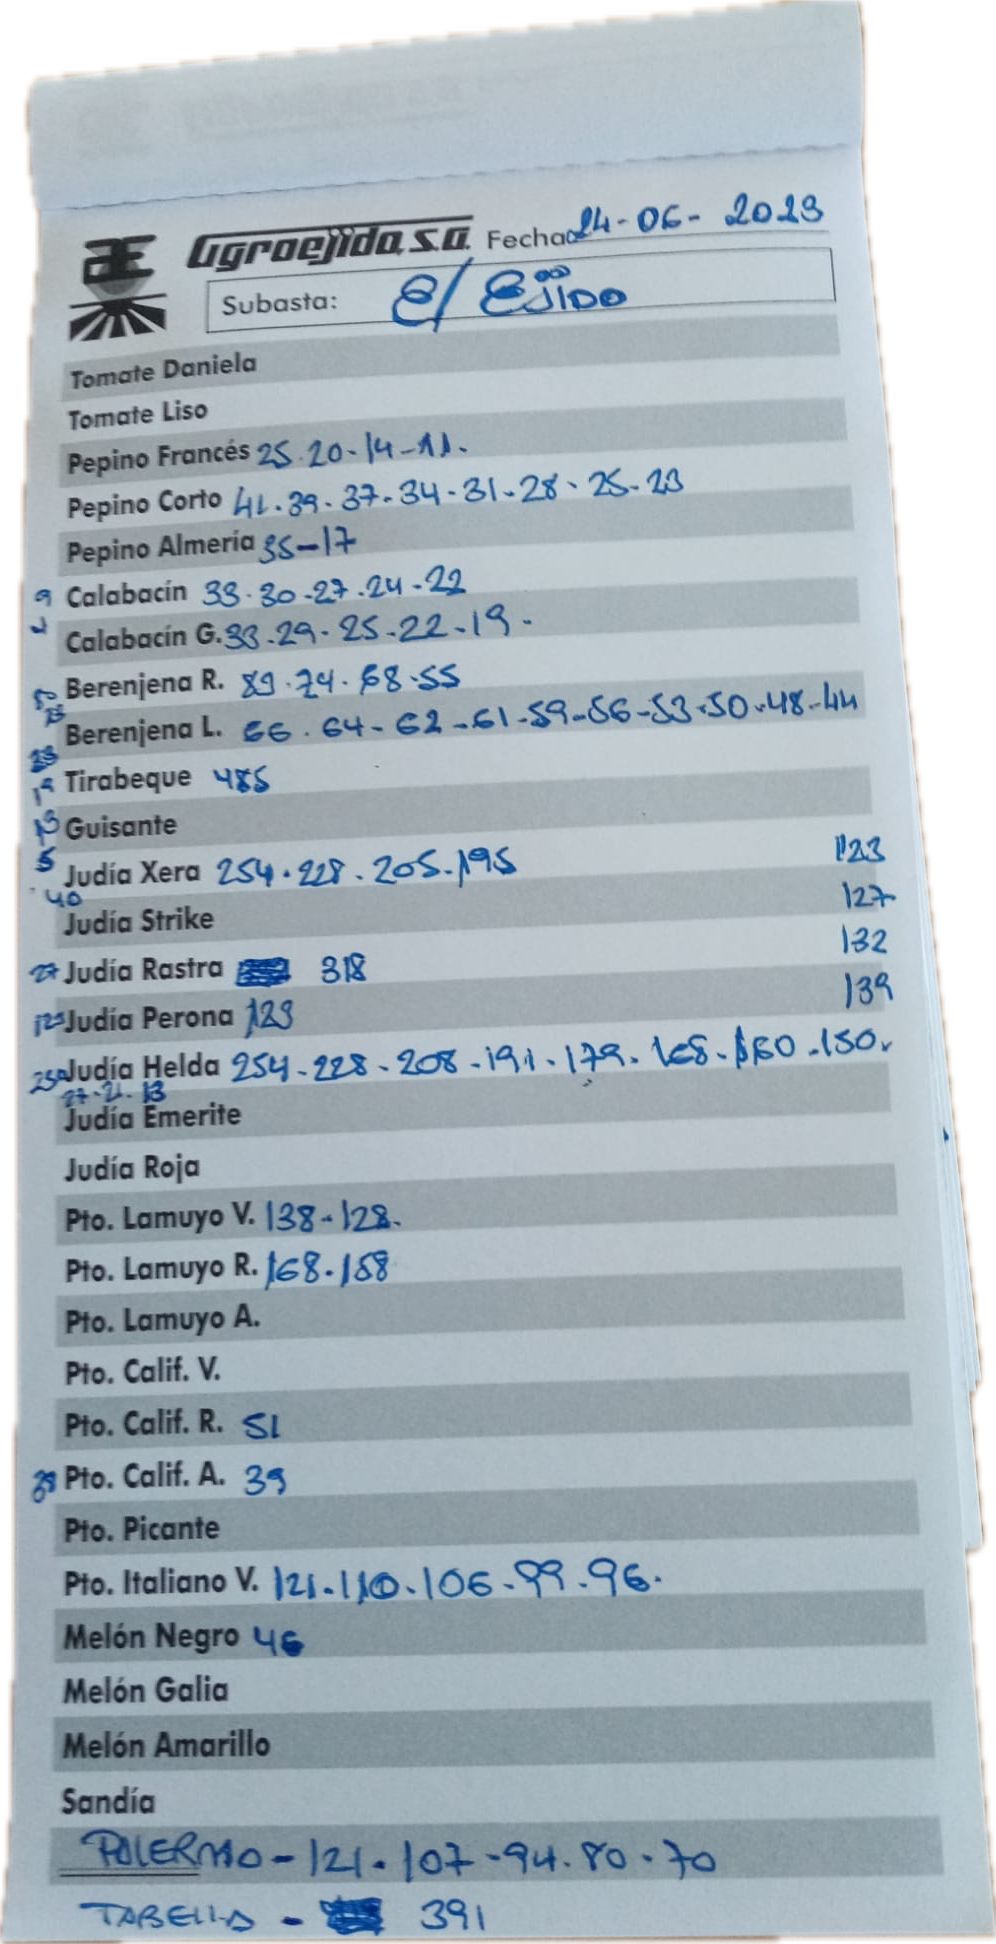 Agroejido, S.A. Fecha 24-06-2023
Subasta: E/ Ejido
Tomate Daniela
Tomate Liso
Pepino Francés 25.20-14-11.
Pepino Corto 41.39.37-34-31-28-25-23
Pepino Almería 35-17
9 Calabacín 33.30-27.24-22
Calabacín G. 33.29-25.22-19.
Berenjena R. 89.74.68.55
Berenjena L. 66.64-62-61-59-56-53.50.48-44
19 Tirabeque 485
13 Guisante
5 Judía Xera 254.228.205.195 123
40
Judía Strike 127
27 Judía Rastra 318 132
125 Judía Perona 123 139
250 Judía Helda 254-228-208-191-179.168.160.150.
27-21-13
Judía Emerite
Judía Roja
Pto. Lamuyo V. 138-128.
Pto. Lamuyo R. 168.158
Pto. Lamuyo A.
Pto. Calif. V.
Pto. Calif. R. 51
39 Pto. Calif. A. 39
Pto. Picante
Pto. Italiano V. 121.110.106-99.96.
Melón Negro 46
Melón Galia
Melón Amarillo
Sandía
PALERMO-121.107-94.80.70
TABELLA - 391